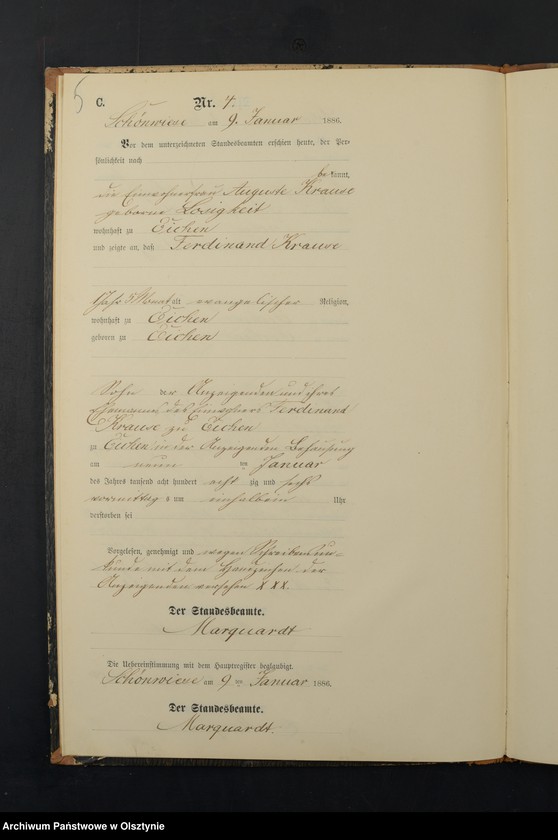 5
C.
Nr. 4.
Schönwiese am 9. Januar 1886.
Vor dem unterzeichneten Standesbeamten erschien heute, der Per-
sönlichkeit nach
be kannt,
die Einwohnerfrau Auguste Krause
geborne Losigkeit
wohnhaft zu Eichen
und zeigte an, daß Ferdinand Krause
1 Jahr 5 Monat alt evangelischer Religion,
wohnhaft zu Eichen
geboren zu Eichen
Sohn der Anzeigenden und ihres
Ehemannes des Einwohners Ferdinand
Krause zu Eichen
zu Eichen in der Anzeigenden Behausung
am neun ten Januar
des Jahres tausend acht hundert acht zig und sechs
vormittag s um einhalb Uhr
verstorben sei
Vorgelesen, genehmigt und wegen Schreibensun-
kunde mit dem Handzeichen der
Anzeigenden versehen XXX.
Der Standesbeamte.
Marquardt
Die Uebereinstimmung mit dem Hauptregister beglaubigt.
Schönwiese am 9 ten Januar 1886.
Der Standesbeamte.
Marquardt.
Archiwum Państwowe w Olsztynie